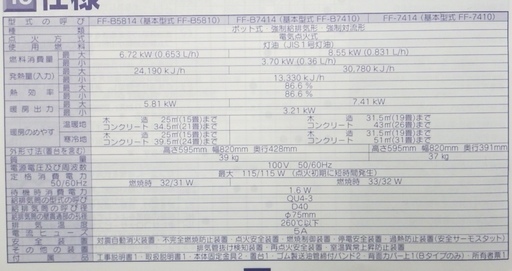 仕様
型式の呼び FF-B5814 (基本型式 FF-B5810) FF-B7414 (基本型式 FF-B7410) FF-7414 (基本型式 FF-7410)
種類 ポット式・強制給排気形・強制対流形
点火方式 電気点火式
使用燃料 灯油 (JIS 1号灯油)
燃料消費量 最大 6.72 kW (0.653 L/h) 8.55 kW (0.831 L/h)
最小 3.70 kW (0.36 L/h)
発熱量(入力) 最大 24,190 kJ/h 30,780 kJ/h
最小 13,330 kJ/h
熱効率 最大 86.6 %
最小 86.6 %
暖房出力 最大 5.81 kW 7.41 kW
最小 3.21 kW
暖房のめやす 温暖地 木造 25㎡(15畳)まで 木造 31.5㎡(19畳)まで
コンクリート 34.5㎡(21畳)まで コンクリート 43㎡(26畳)まで
寒冷地 木造 25㎡(15畳)まで 木造 31.5㎡(19畳)まで
コンクリート 39.5㎡(24畳)まで コンクリート 51㎡(31畳)まで
外形寸法(置台を含む) 高さ595mm 幅820mm 奥行428mm 高さ595mm 幅820mm 奥行391mm
質量 39 kg 37 kg
電源電圧及び周波数 100V 50/60Hz
定格消費電力 最大 115/115 W (点火初期に短時間発生)
50/60Hz 燃焼時 32/31 W 燃焼時 33/32 W
待機時消費電力 1.6 W
給排気筒の型式の呼び QU4-3
給排気筒の呼び径 D40
給排気筒の壁貫通部の孔径 φ75mm
排気温度 260℃以下
電流ヒューズ 5A
安全装置 対震自動消火装置・不完全燃焼防止装置・点火安全装置・燃焼制御装置・停電安全装置・過熱防止装置(安全サーモスタット)
その他の装置 排気管抜け検知装置・再点火安全装置・室温異常上昇防止装置
付属品 工事説明書1・取扱説明書1・本体固定金具2・置台1・ゴム製送油管締付バンド2・背面カバー上1(Bタイプのみ)・所有者票1